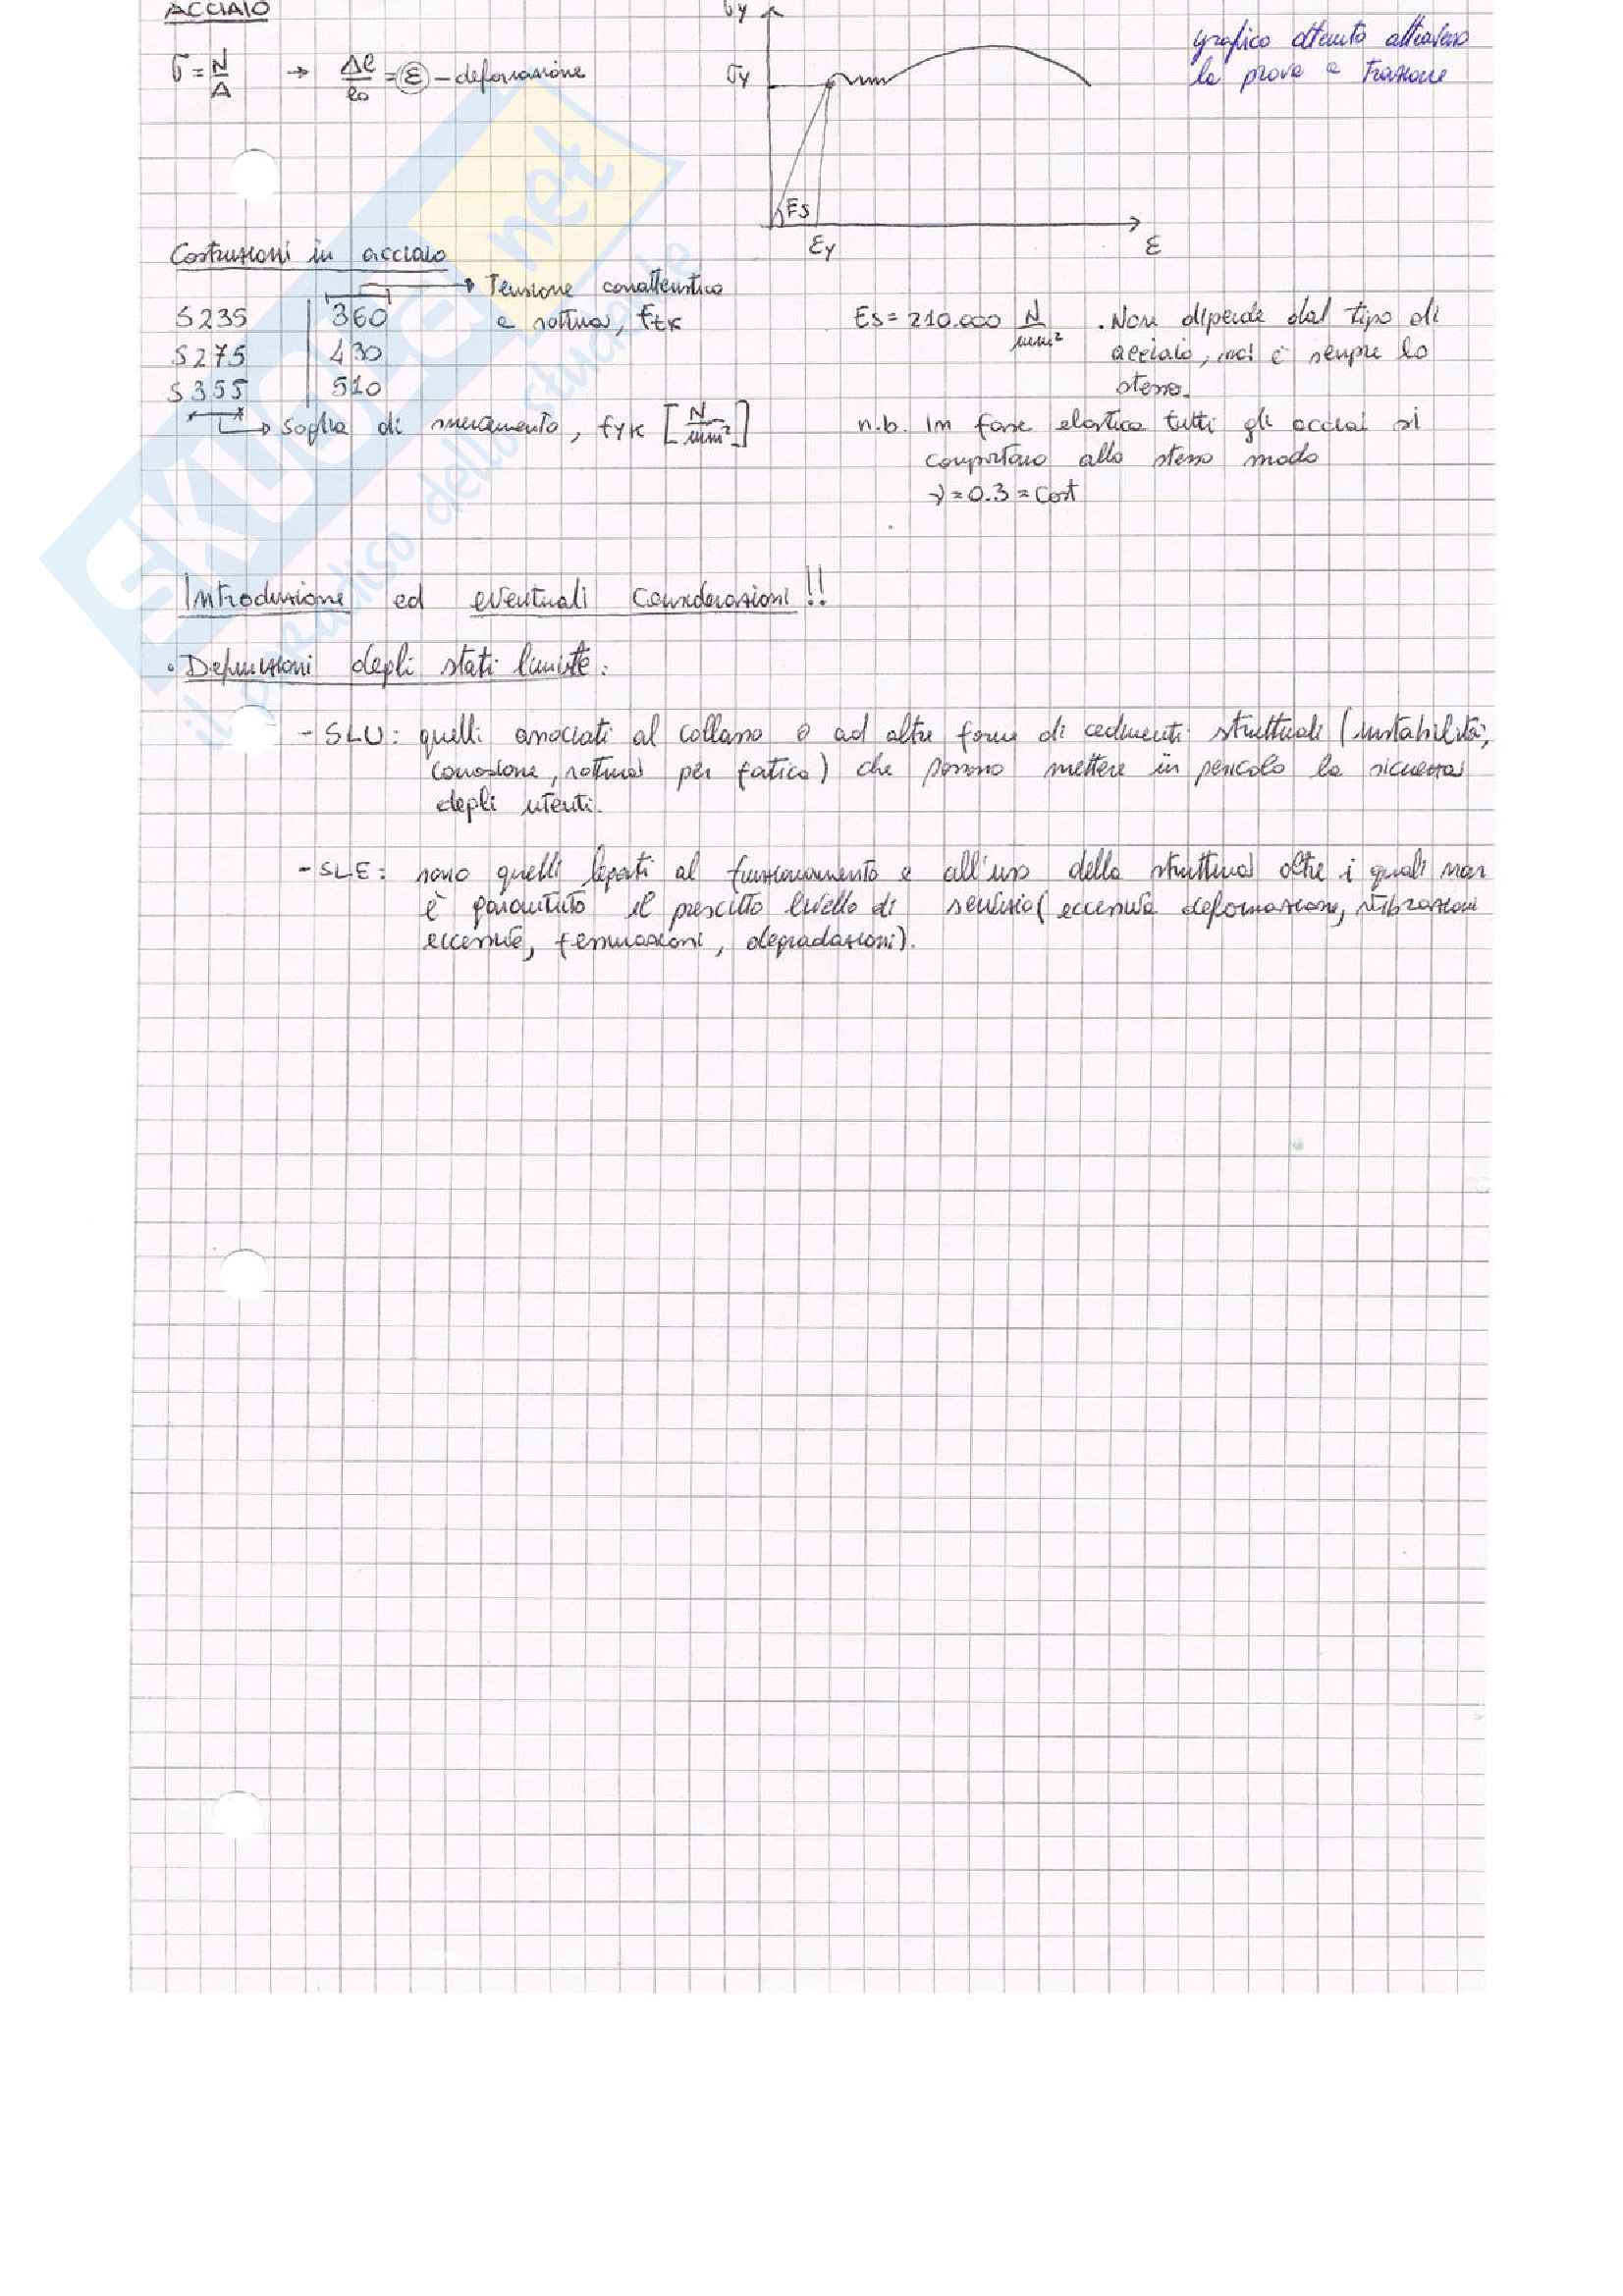 ACCIAIO
σ = N/A → Δl/l₀ = ε - deformazione
σy
σy
Es
εy
ε
grafico ottenuto attraverso
la prova a trazione
Costruzioni in acciaio
Tensione caratteristica
a rottura, ftk
S235 | 360
S275 | 430
S355 | 510
soglia di snervamento, fyk [N/mm²]
Es = 210.000 N/mm² . Non dipende dal tipo di
acciaio, ma è sempre lo
stesso.
n.b. In fase elastica tutti gli acciai si
comportano allo stesso modo
ν = 0.3 = cost
Introduzione ed eventuali considerazioni!!
• Definizioni degli stati limite:
- SLU: quelli associati al collasso o ad altre forme di cedimenti strutturali (instabilità,
corrosione, rottura per fatica) che possono mettere in pericolo la sicurezza
degli utenti.
- SLE: sono quelli legati al funzionamento e all'uso della struttura oltre i quali non
è garantito il prescritto livello di servizio (eccessive deformazione, vibrazioni
eccessive, fessurazioni, degradazioni).
SKUOLA.net
il paradiso dello studente